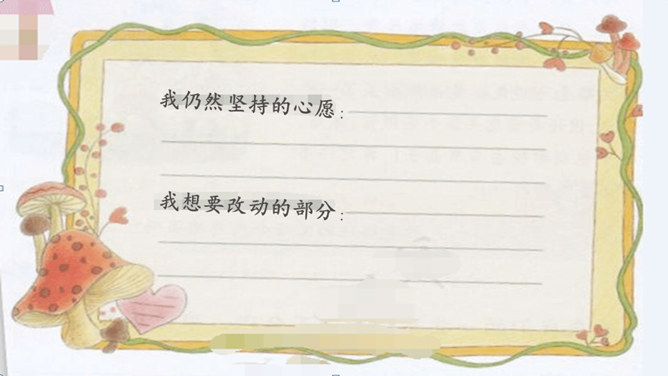 我仍然坚持的心愿：
我想要改动的部分：